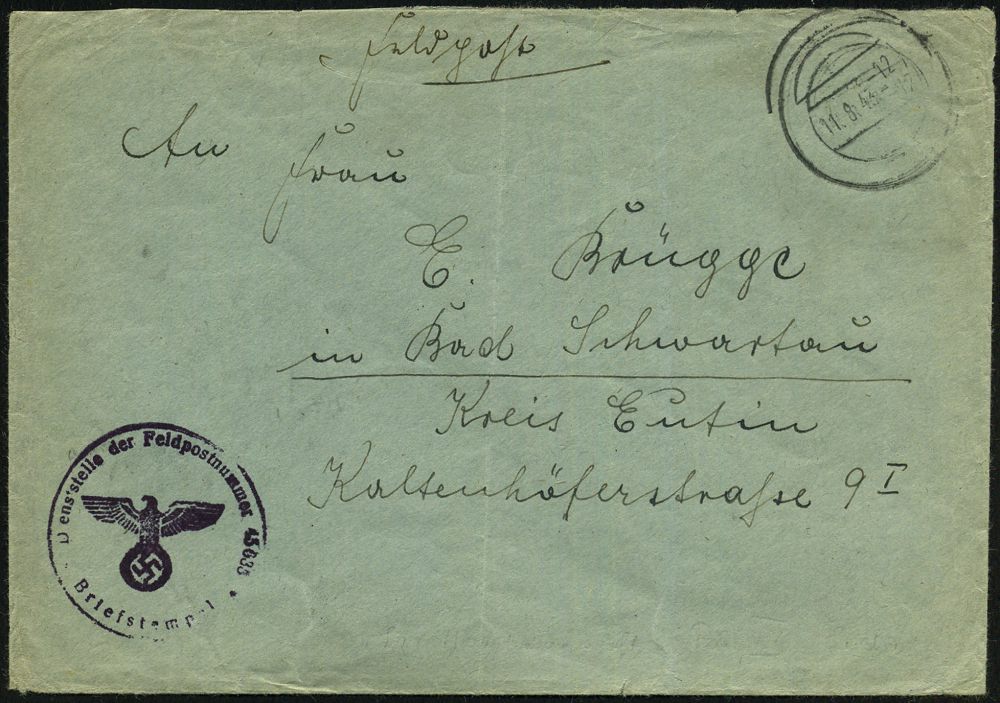 Feldpost
11.8.43.-12
An
Frau
E. Brügge
in Bad Schwartau
Kreis Eutin
Kaltenhöferstraße 9 I
Dienststelle der Feldpostnummer
Briefstempel